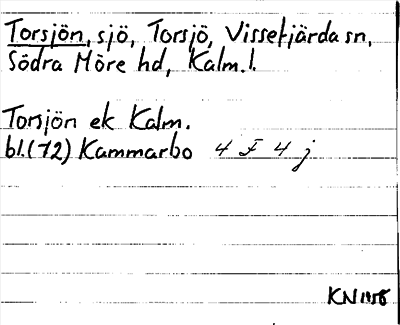 Torsjön, sjö, Torsjö, Vissefjärda sn,
Södra Möre hd, Kalm. l.
Torsjön ek Kalm.
bl. (72) Kammarbo 4 F 4 j
KN